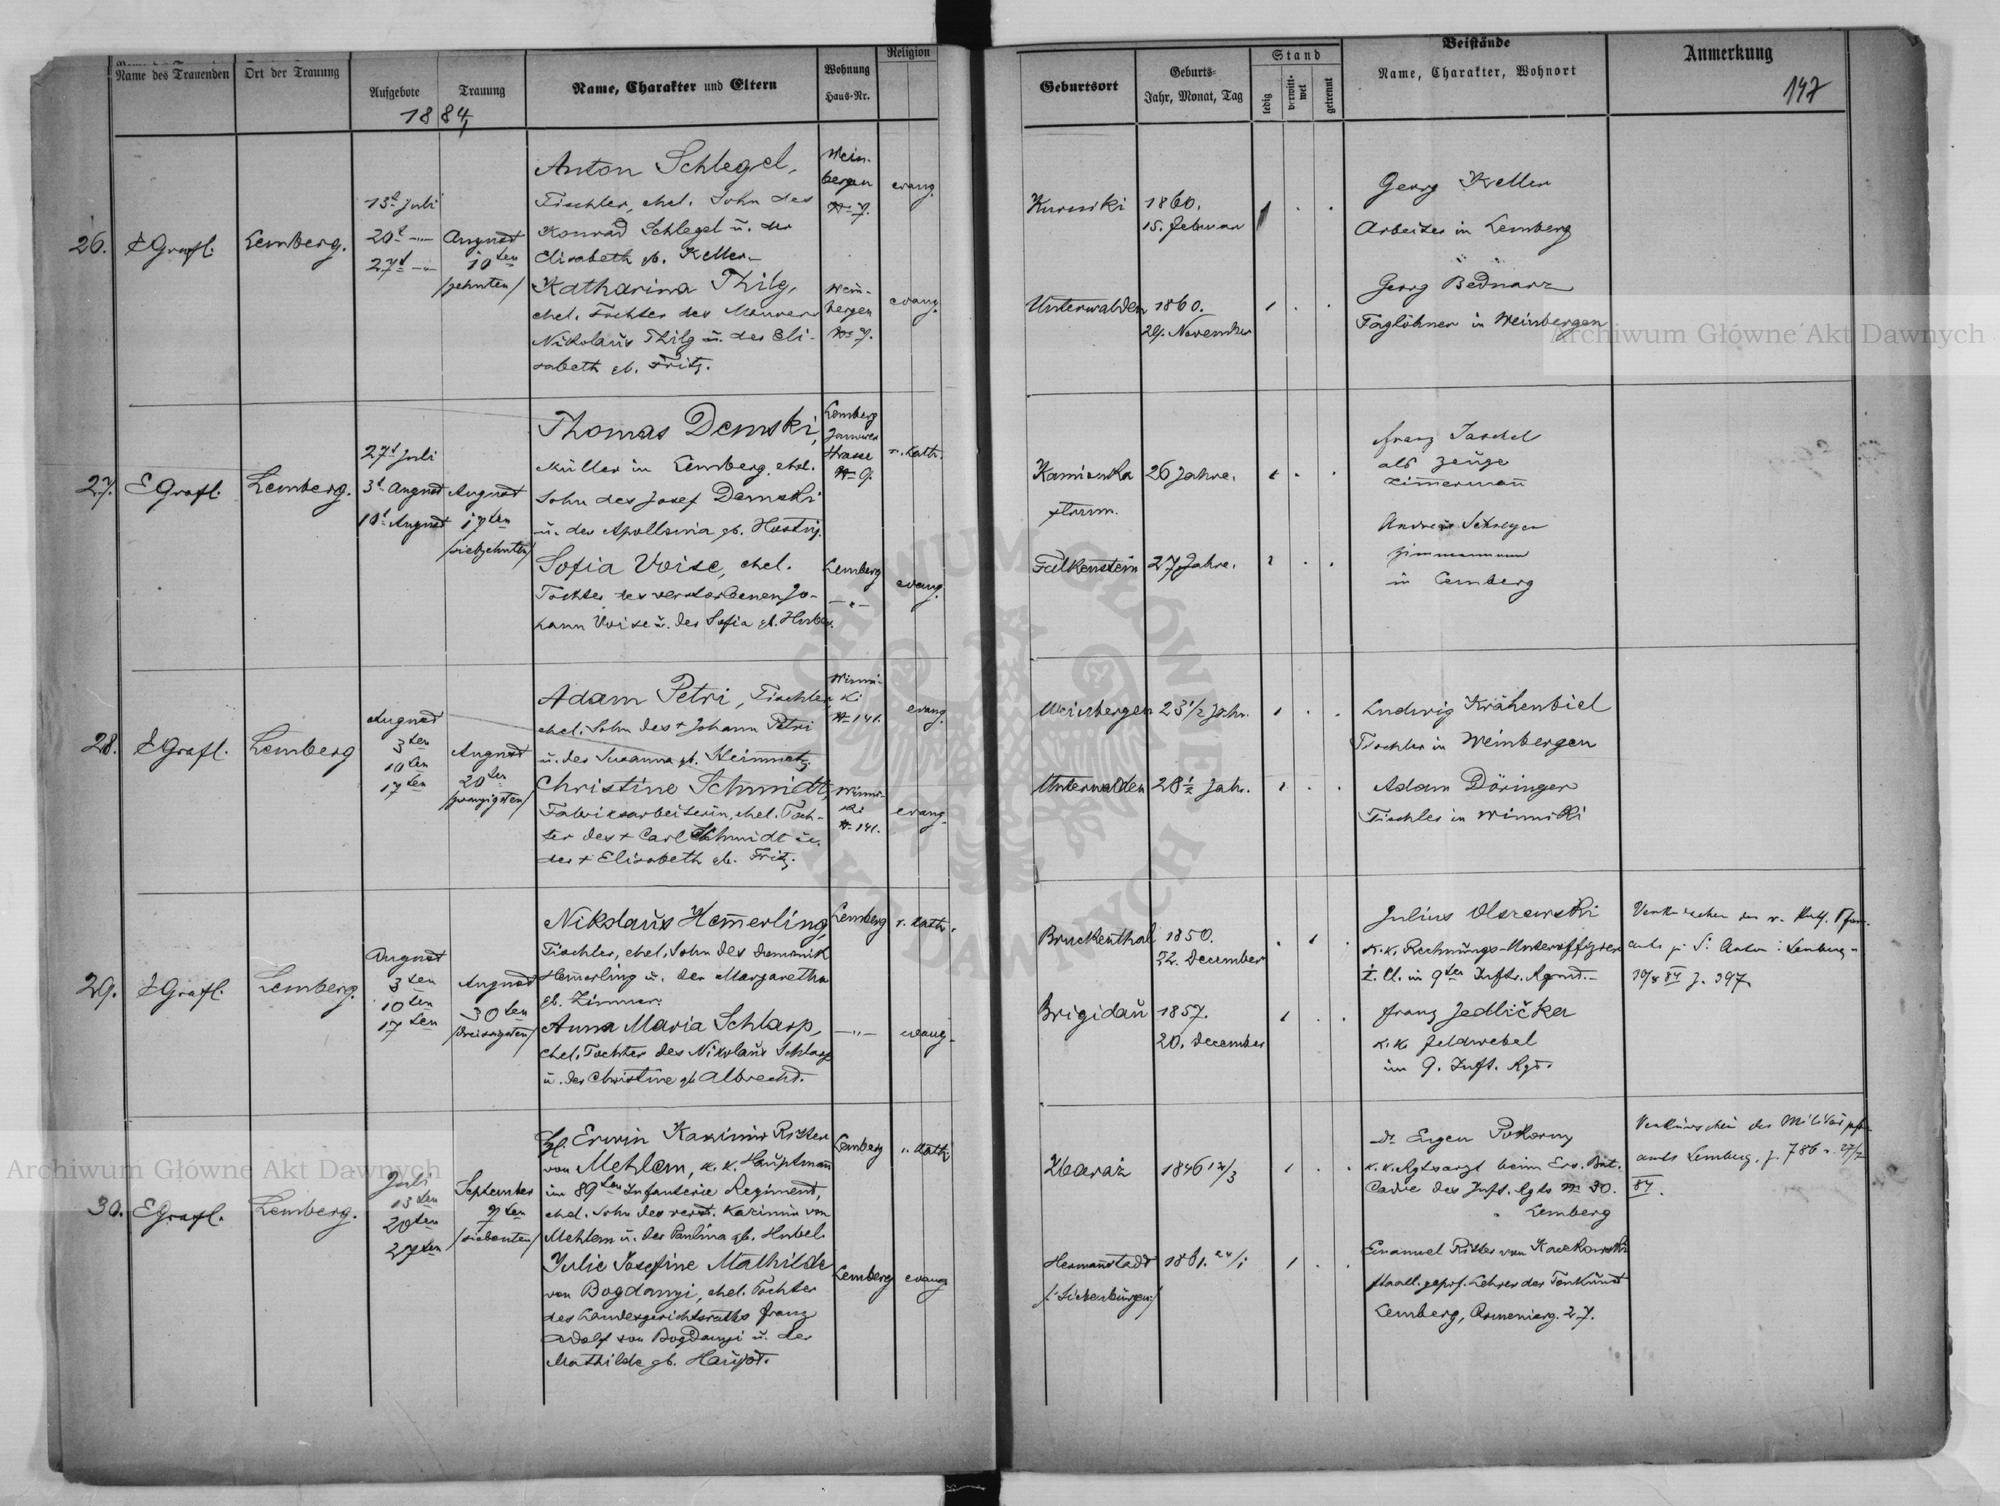 Name des Trauenden
Ort der Trauung
Aufgebote
Trauung
1884
Name, Charakter und Eltern
Wohnung
Haus-Nr.
Religion
Geburtsort
Geburts-
Jahr, Monat, Tag
Stand
ledig
verwit-
wet
getrennt
Beistände
Name, Charakter, Wohnort
Anmerkung
147
26.
E Grafl.
Lemberg.
13t Juli
20t -"-
27t -"-
August
10ten
/zehnten/
Anton Schlegel,
Tischler, ehel. Sohn des
Konrad Schlegel u. der
Elisabeth gb. Keller.
Katharina Thilg,
ehel. Tochter des Maurers
Nikolaus Thilg u. der Eli-
sabeth gb. Fritz.
Wein-
bergen
N 7.
Wein-
bergen
N 7.
evang.
evang.
Kurniki
1860.
15. Februar
Unterwalden
1860.
29. November
Georg Keller
Arbeiter in Lemberg
Georg Bednarz
Taglöhner in Weinbergen
27.
E Grafl.
Lemberg.
27t Juli
3t August
10t August
August
17ten
/siebzehnten/
Thomas Demski,
Müller in Lemberg, ehel.
Sohn des Josef Demski
u. der Apollonia gb.
Sofia Voise, ehel.
Tochter des verstorbenen Jo-
hann Voise u. der Sofia gb. Huber.
Lemberg
Janower
Strasse
N 9.
Lemberg
-"-
r. kath.
evang.
Kamionka
strum.
26 Jahre.
Falkenstein
27 Jahre.
Franz
als Zeuge
Zimmermann
Andreas Schreyer
Zimmermann
in Lemberg
28.
E Grafl.
Lemberg
August
3ten
10ten
17ten
August
20ten
/zwanzigsten/
Adam Petri, Tischler,
ehel. Sohn des + Johann Petri
u. der Susanna gb.
Christine Schmidt,
Fabriksarbeiterin, ehel. Toch-
ter des + Carl Schmidt u.
der + Elisabeth gb. Fritz.
Winni-
ki
N 141.
Winni-
ki
N 141.
evang.
evang.
Weinbergen
23 1/2 Jahr.
Unterwalden
28 1/2 Jahr.
Ludwig Krähenbiel
Tischler in Weinbergen
Adam Döringer
Tischler in Winniki
29.
E Grafl.
Lemberg.
August
3ten
10ten
17ten
August
30ten
/dreissigsten/
Nikolaus Hemerling,
Tischler, ehel. Sohn des Dominik
Hemerling u. der Margaretha
gb. Zimmer.
Anna Maria Schlarp,
ehel. Tochter des Nikolaus Schlarp
u. der Christine gb. Albrecht.
Lemberg
-"-
r. kath.
evang.
Bruckenthal
1850.
22. December
Brigidau
1857.
20. December
Julius Olszewski
k.k. Rechnungs-Unteroffizier
I. Cl. in 9ten Inftr. Rgmt.
Franz Jedlička
k.k. Feldwebel
im 9. Inft. Rgt.
Verkünschein des r. kath. Pfarr-
amts z. St. Anton: Lemberg
10/8 84 Z. 397.
30.
E Grafl.
Lemberg.
Juli
13ten
20ten
27ten
September
7ten
/siebenten/
Erwin Kasimir Ritter
von Mehlem, k.k. Hauptmann
im 89ten Infanterie Regiment,
ehel. Sohn des verst. Kasimir von
Mehlem u. der Paulina gb. Hubel.
Julie Josefine Mathilde
von Bogdanyi, ehel. Tochter
des Landesgerichtsraths Franz
Adolf von Bogdanyi u. der
Mathilde gb. Haupt.
Lemberg
Lemberg
r. kath.
evang.
Zbaraż
1846 12/3
Hermannstadt
/:Siebenbürgen:/
1861. 24/1
Dr. Eugen Pokorny
k.k. Rgtsarzt beim Ers. Bat.
Cadre des Inft. Rgts N 30.
Lemberg
Emanuel Ritter von Kaczkowski
staatl. geprf. Lehrer der Tonkunst
Lemberg, Armenierg. 27.
Verkünschein des Militärpfarr-
amts Lemberg. Z. 786 v. 27/7
84.
Archiwum Główne Akt Dawnych
Archiwum Główne Akt Dawnych
ARCHIWUM GŁÓWNE
AKT DAWNYCH